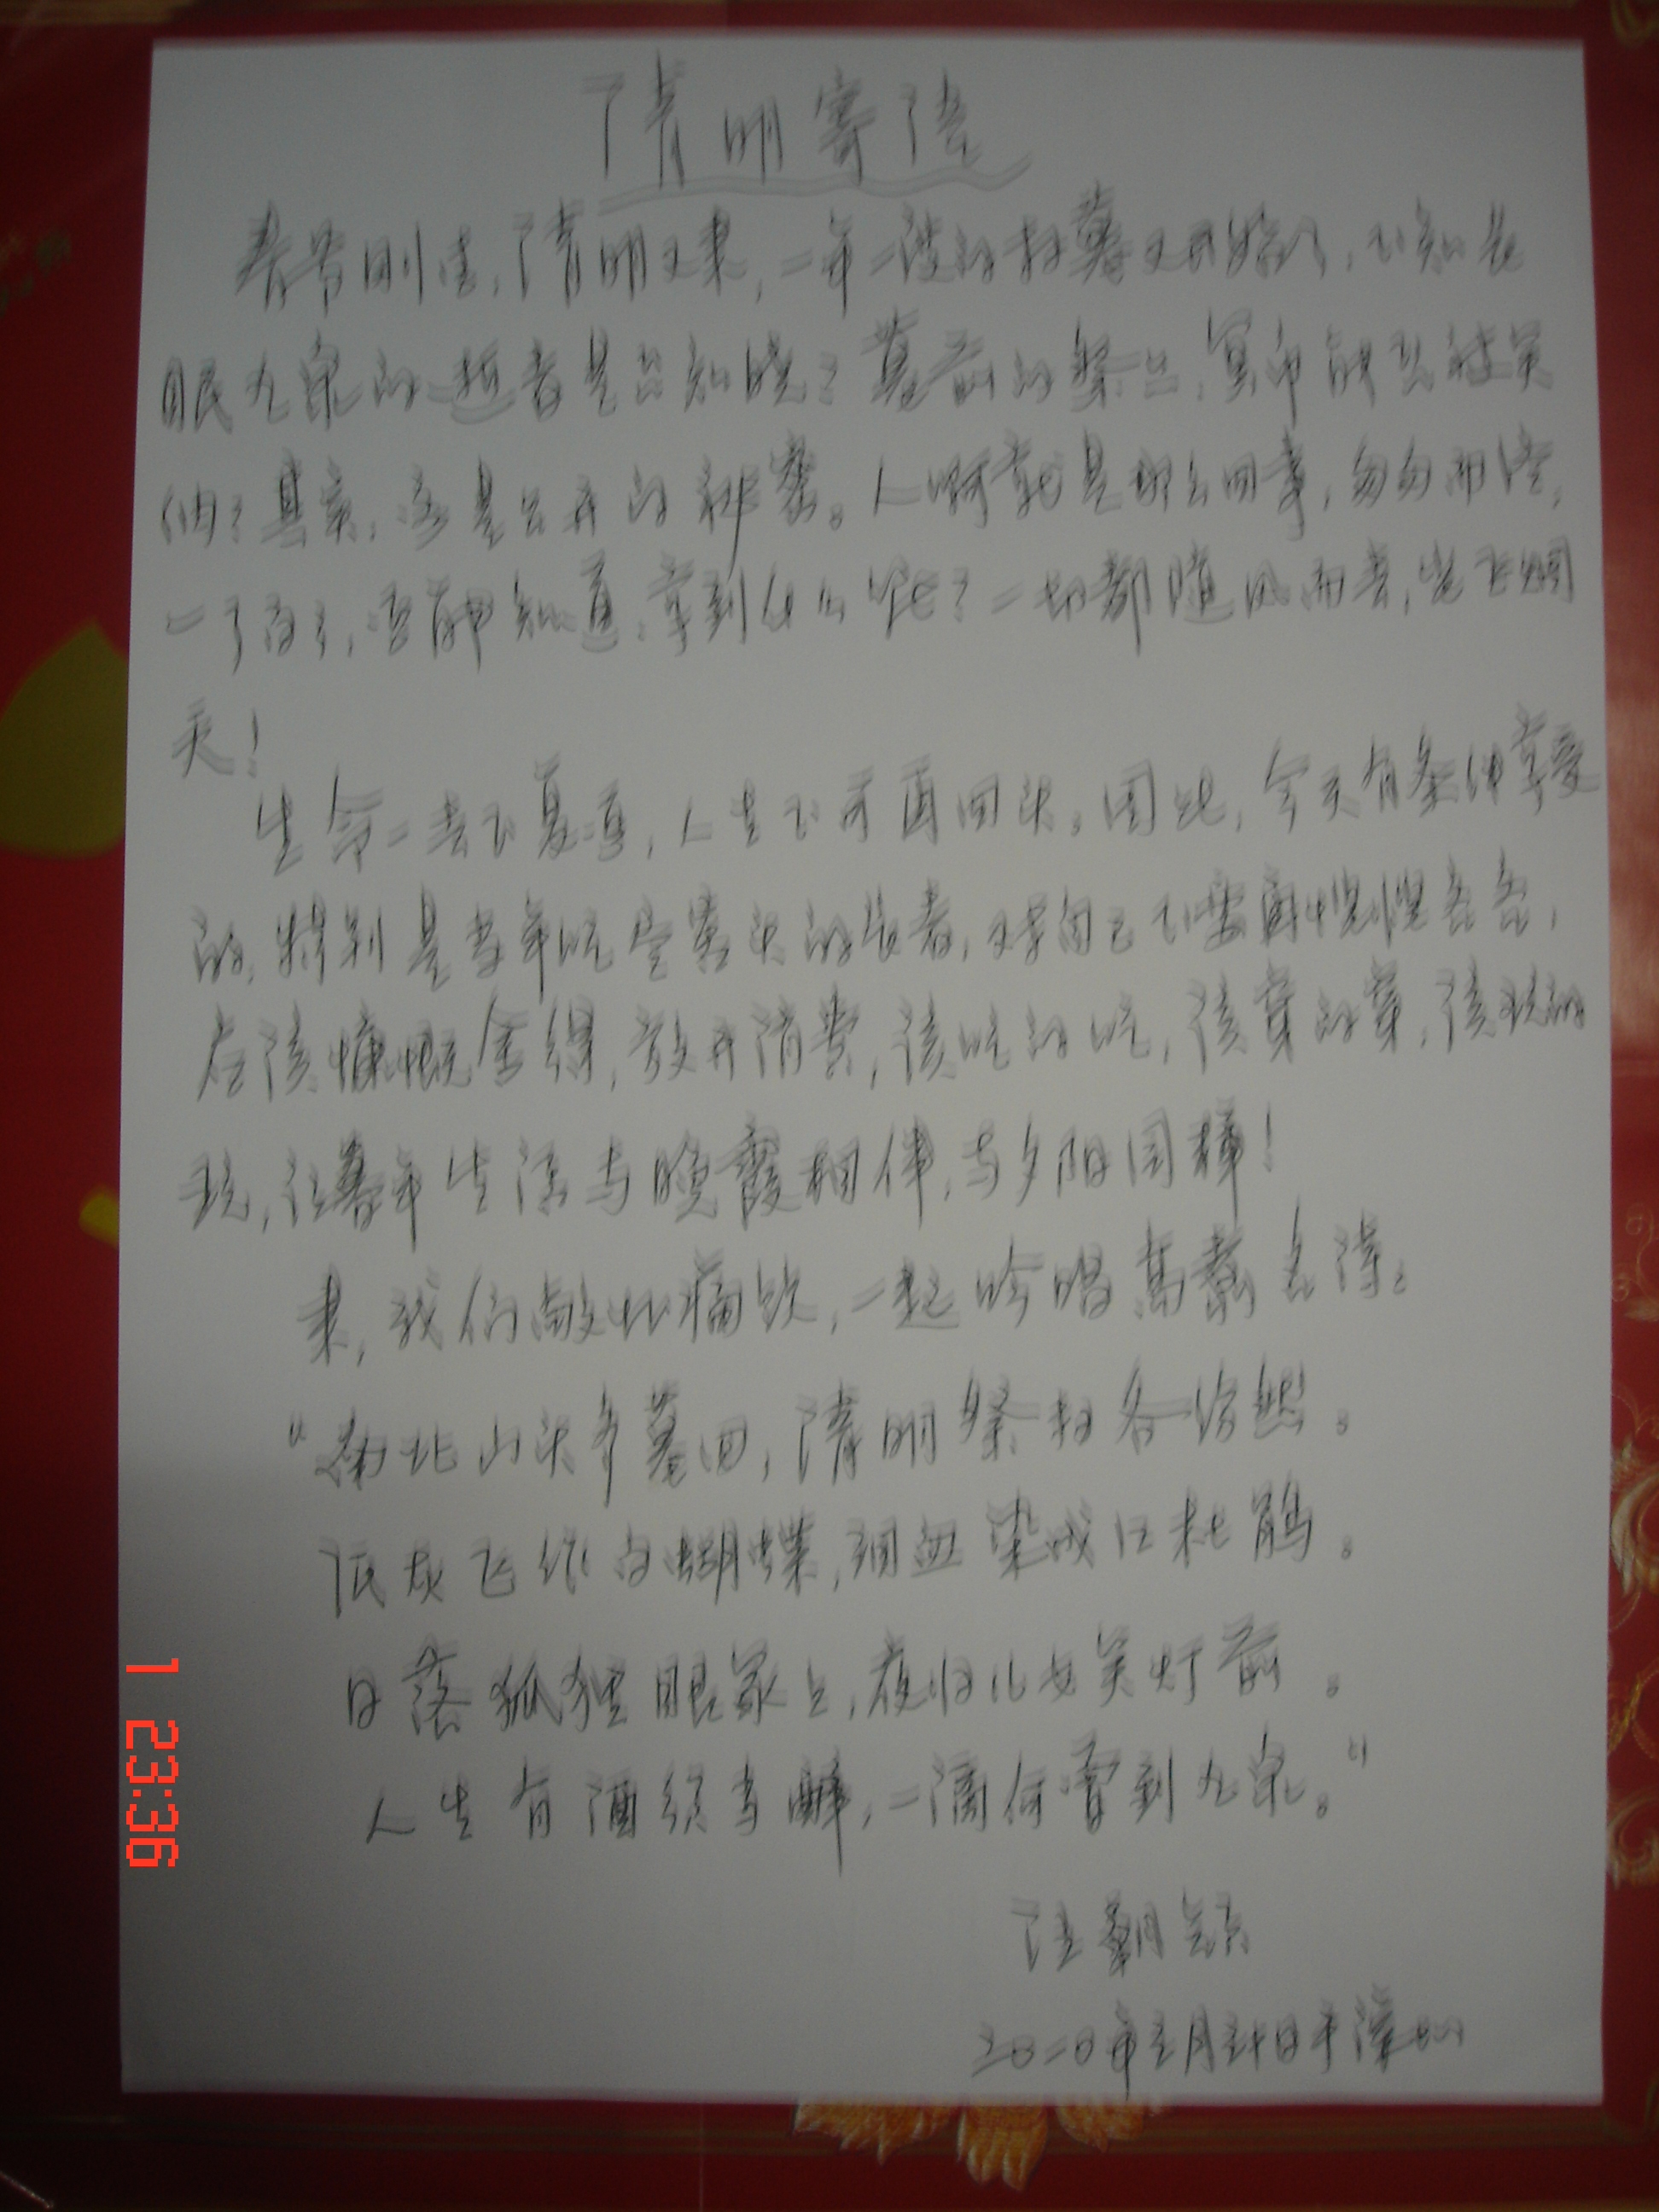 清明寄语
春节刚去,清明又来,一年一度的扫墓又开始了,不知长
眠九泉的逝者是否知晓?墓前的祭品,冥币能否被笑
纳?其实,这是公开的秘密。人啊就是那么回事,匆匆而
一了百了,否能知道,拿到什么呢?一切都随风而去,灰飞烟
灭!
生命一去不复返,人生不可再回头。因此,今天有条件享受
的,特别是当年吃尽苦头的长者,对自己不要再悭悭吝吝,
应该慷慨金钱,放开消费,该吃的吃,该穿的穿,该玩的
玩,让暮年生活与晚霞相伴,与夕阳同辉!
来,我们敞怀痛饮,一起吟唱高翥名诗。
“南北山头多墓田,清明祭扫各纷然。
纸灰飞作白蝴蝶,泪血染成红杜鹃。
日落狐狸眠冢上,夜归儿女笑灯前。
人生有酒须当醉,一滴何曾到九泉。”
汪朝
年三月 日于漳
1 23:36